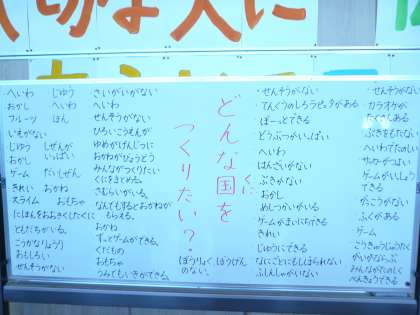 切な人に
どんな国を
くに
つくりたい?
へいわ じゆう さいがいがない
おかし へいわ へいわ
フルーツ ほん せんそうがない
いえがない ひろいこうえんが
じゆう しぜんが ゆめがげんじつに
おかし いっぱい おかねがびょうどう
ゲーム だいしぜん みんながつくりたい
くにをまとめる。
きれい おかね さむらいがいる。
スライム おもちゃ なんでもするとおかねが
にほんをおおきくしたくに もらえる。
ともだちがいる。 おかね
ごうかなりょうり ずっとゲームができる。
おもしろい くだもの
せんそうがない おもちゃ
うみてもいきができる。
ぼうりょく、ぼうげん
のない。
・せんそうがない
・てんくうのしろラピュタがある
・ぼーっとできる
・どうぶつがいっぱい
・へいわ
・はんざいがない
・ぶきがない
・おかし
・めしつかいがいる
・ゲームがまいにちできる
・きれい
・じゆうにできる
・なにごとにもしばられない
・ふしんしゃがいない
・せんそうがない
・カラオケが
たくさんある
・ぶきをもたない
・へいわでたのしい
・サッカーがつよい
・ゲームがいっしょう
できる
・がっこうがない
・ふくがある
・ゲーム
・こうきゅうじゅうたく
がいがならぶ
・みんながたのしく
べんきょうできる